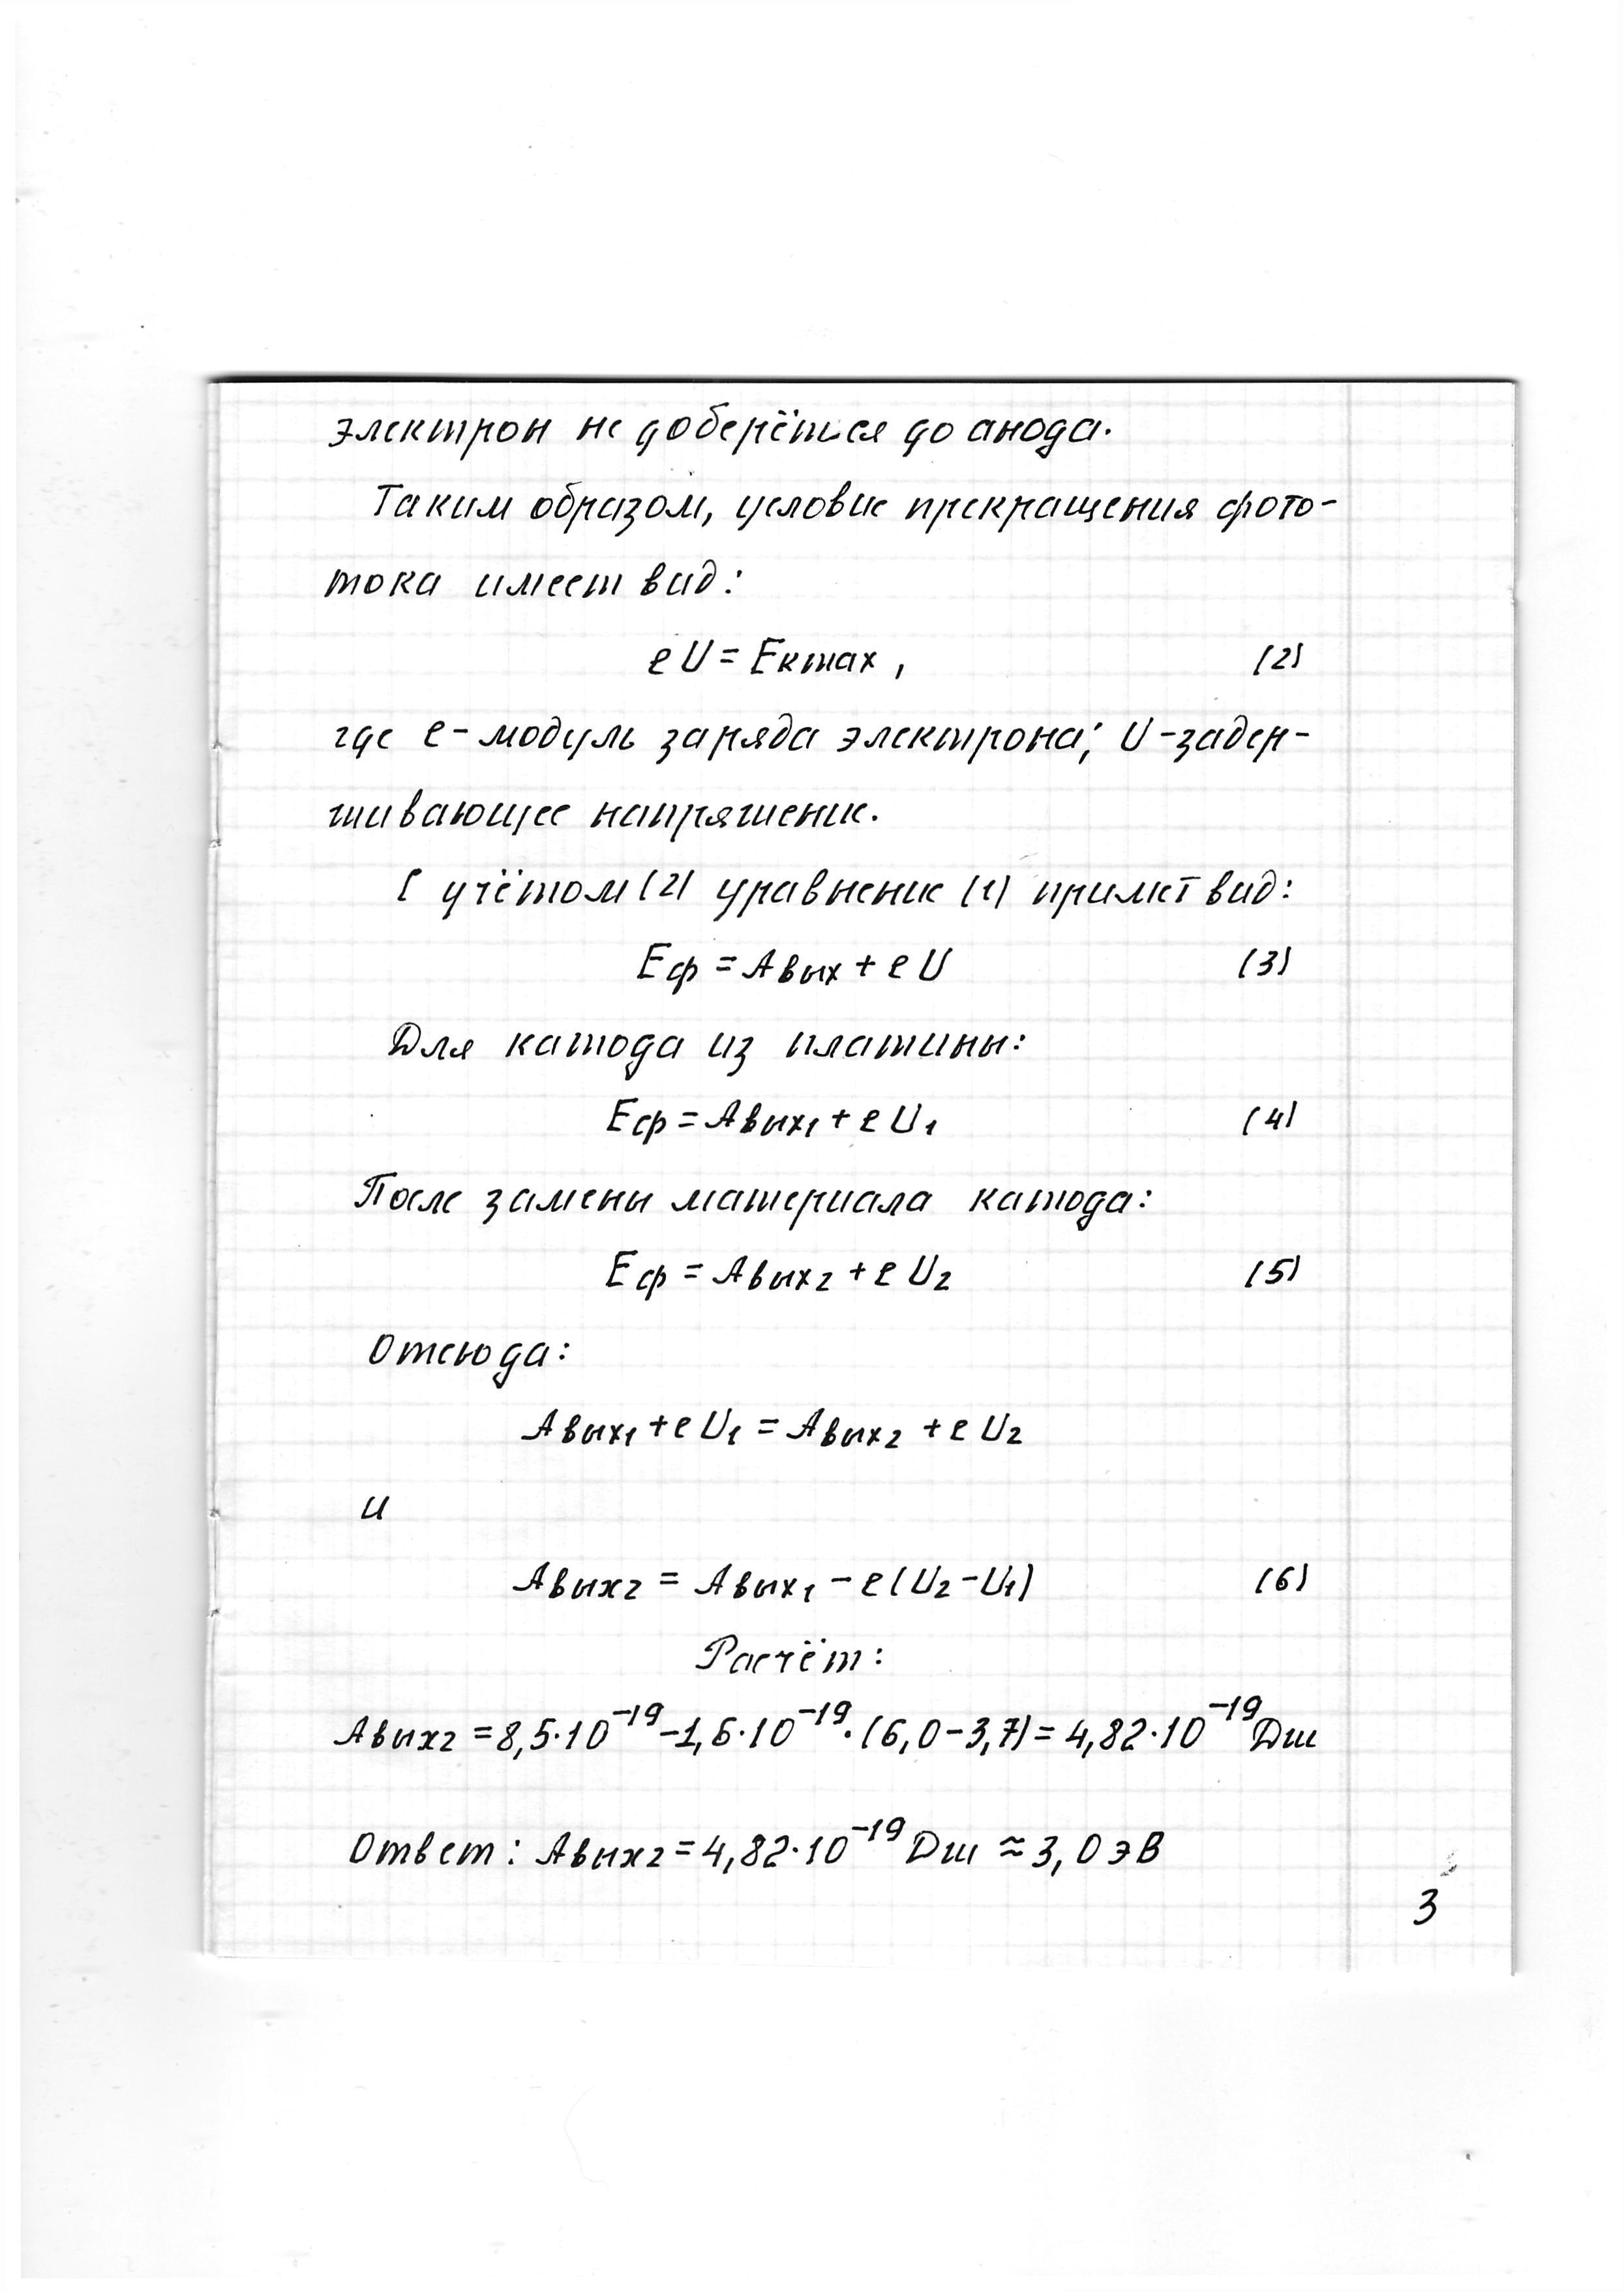 электрон не доберётся до анода.
Таким образом, условие прекращения фото-
тока имеет вид:
eU = Eкmax, (2)
где e - модуль заряда электрона; U - задер-
живающее напряжение.
С учётом (2) уравнение (1) примет вид:
Eф = Aвых + eU (3)
Для катода из платины:
Eф = Aвых₁ + eU₁ (4)
После замены материала катода:
Eф = Aвых₂ + eU₂ (5)
Отсюда:
Aвых₁ + eU₁ = Aвых₂ + eU₂
и
Aвых₂ = Aвых₁ - e(U₂ - U₁) (6)
Расчёт:
Aвых₂ = 8,5·10⁻¹⁹ - 1,6·10⁻¹⁹·(6,0 - 3,7) = 4,82·10⁻¹⁹ Дж
Ответ: Aвых₂ = 4,82·10⁻¹⁹ Дж ≈ 3,0 эВ
3